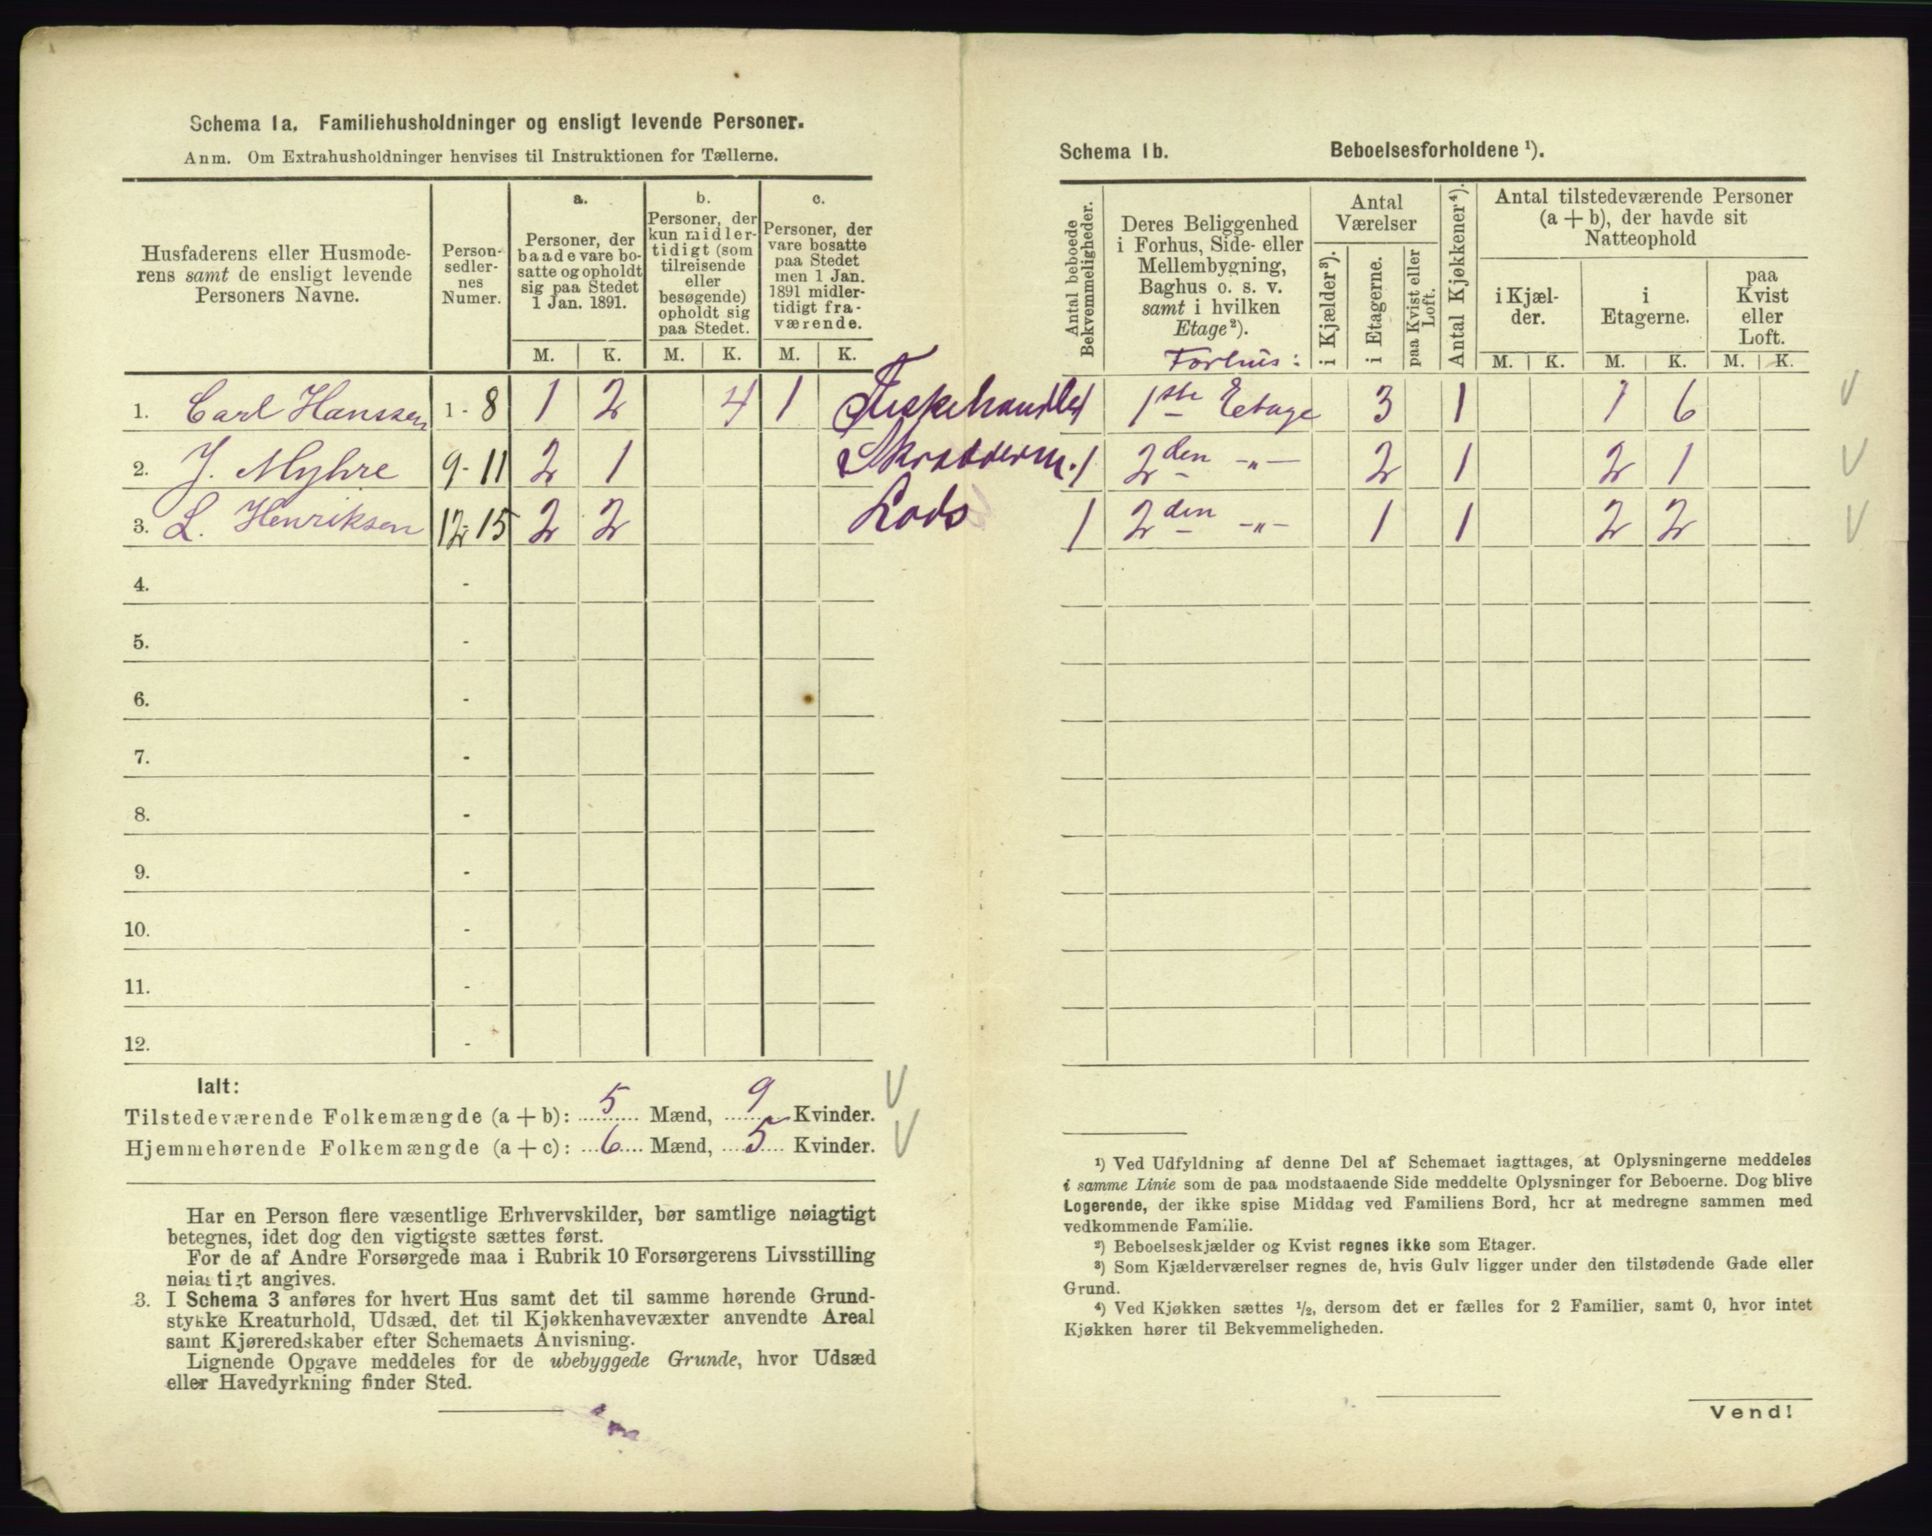 Schema 1a. Familiehusholdninger og ensligt levende Personer.
Anm. Om Extrahusholdninger henvises til Instruktionen for Tællerne.
Husfaderens eller Husmode-
rens samt de ensligt levende
Personers Navne.
Person-
sedler-
nes
Numer.
a.
Personer, der
baade vare bo-
satte og opholdt
sig paa Stedet
1 Jan. 1891.
b.
Personer, der
kun midler-
tidigt (som
tilreisende
eller
besøgende)
opholdt sig
paa Stedet.
c.
Personer, der
vare bosatte
paa Stedet
men 1 Jan.
1891 midler-
tidigt fra-
værende.
M. K. M. K. M. K.
1. Carl Hanssen 1 - 8 1 2 4 1 Fiskehandler
2. J. Myhre 9 - 11 2 1 Skrædderm.
3. L. Henriksen 12 - 15 2 2 Lods
4. -
5. -
6. -
7. -
8. -
9. -
10. -
11. -
12. -
Ialt:
Tilstedeværende Folkemængde (a + b): 5 Mænd, 9 Kvinder.
Hjemmehørende Folkemængde (a + c): 6 Mænd, 5 Kvinder.
Har en Person flere væsentlige Erhvervskilder, bør samtlige nøiagtigt
betegnes, idet dog den vigtigste sættes først.
For de af Andre Forsørgede maa i Rubrik 10 Forsørgerens Livsstilling
nøiagtigt angives.
3. I Schema 3 anføres for hvert Hus samt det til samme hørende Grund-
stykke Kreaturhold, Udsæd, det til Kjøkkenhavevæxter anvendte Areal
samt Kjøreredskaber efter Schemaets Anvisning.
Lignende Opgave meddeles for de ubebyggede Grunde, hvor Udsæd
eller Havedyrkning finder Sted.
Schema 1b. Beboelsesforholdene ¹).
Antal beboede
Bekvemmeligheder.
Deres Beliggenhed
i Forhus, Side- eller
Mellembygning,
Baghus o. s. v.
samt i hvilken
Etage²).
Forhus:
Antal
Værelser
i Kjælder³).
i Etagerne.
paa Kvist eller
Loft.
Antal Kjøkkener⁴).
Antal tilstedeværende Personer
(a + b), der havde sit
Natteophold
i Kjæl-
der.
i
Etagerne.
paa
Kvist
eller
Loft.
M. K. M. K. M. K.
1 1ste Etage 3 1 1 6
1 2den -"- 2 1 2 1
1 2den -"- 1 1 2 2
¹) Ved Udfyldning af denne Del af Schemaet iagttages, at Oplysningerne meddeles
i samme Linie som de paa modstaaende Side meddelte Oplysninger for Beboerne. Dog blive
Logerende, der ikke spise Middag ved Familiens Bord, her at medregne sammen med
vedkommende Familie.
²) Beboelseskjælder og Kvist regnes ikke som Etager.
³) Som Kjælderværelser regnes de, hvis Gulv ligger under den tilstødende Gade eller
Grund.
⁴) Ved Kjøkken sættes ½, dersom det er fælles for 2 Familier, samt 0, hvor intet
Kjøkken hører til Bekvemmeligheden.
Vend!